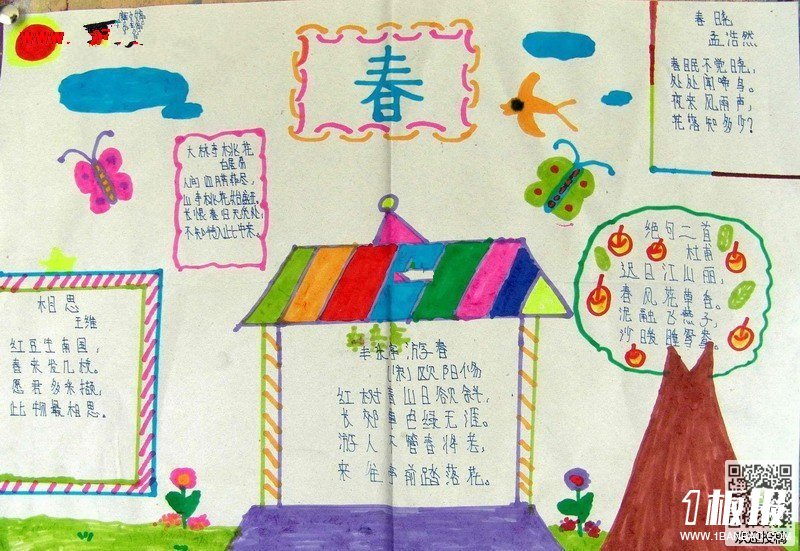 春
春晓
孟浩然
春眠不觉晓，
处处闻啼鸟。
夜来风雨声，
花落知多少？
大林寺桃花
白居易
人间四月芳菲尽，
山寺桃花始盛开。
长恨春归无觅处，
不知转入此中来。
绝句二首
杜甫
迟日江山丽，
春风花草香。
泥融飞燕子，
沙暖睡鸳鸯。
相思
王维
红豆生南国，
春来发几枝。
愿君多采撷，
此物最相思。
丰乐亭游春
（宋）欧阳修
红树青山日欲斜，
长郊草色绿无涯。
游人不管春将老，
来往亭前踏落花。
1板报
WWW.1BANBAO.COM
欢迎投稿